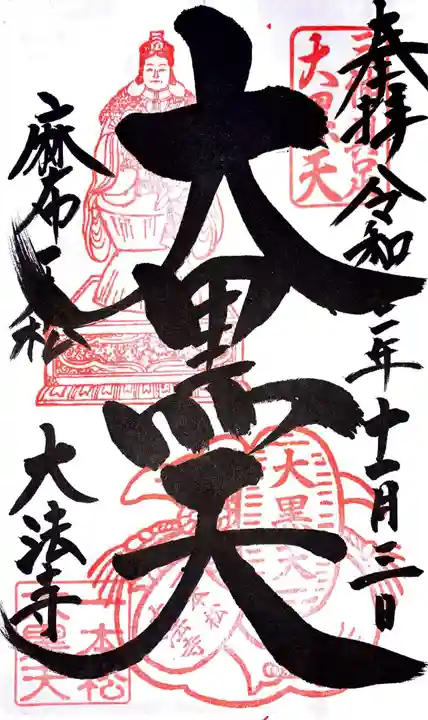 奉拝 令和二年十一月三日
大黒天
麻布一本松
大法寺
大黒天
大黒天
一本松
大黒天